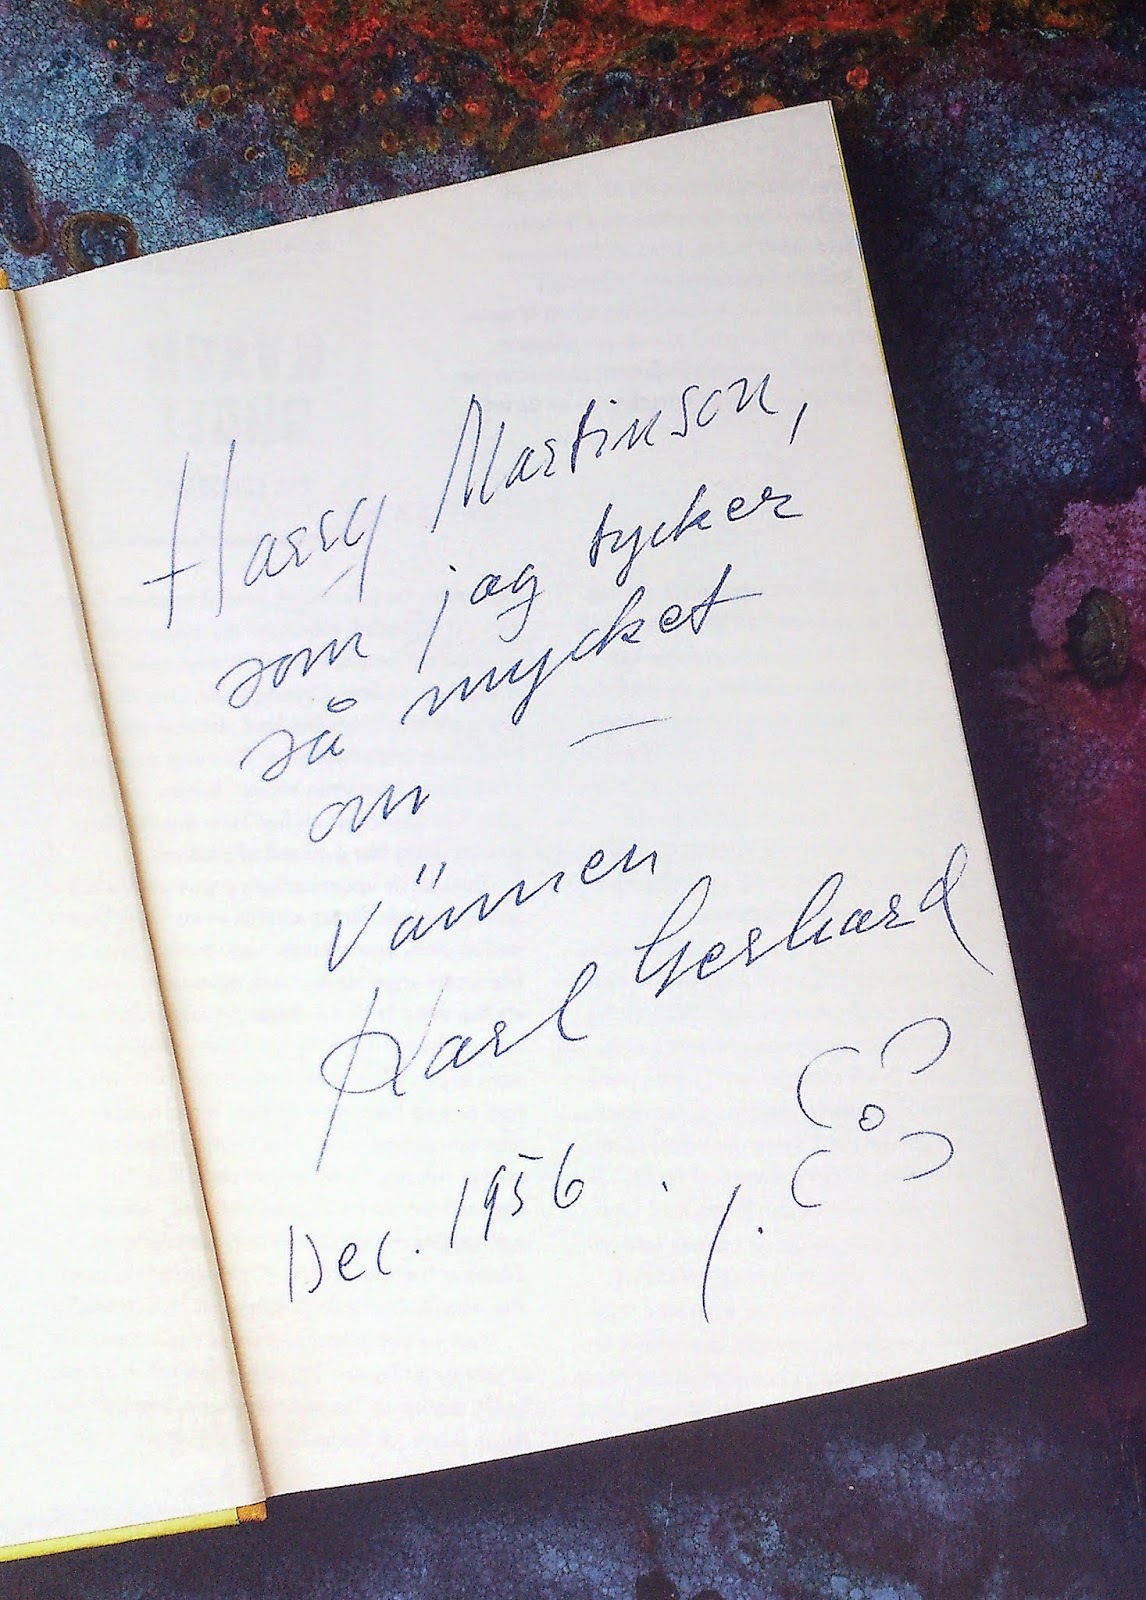 Harry Martinson,
som jag tycker
så mycket
om —
vännen
Karl Gerhard
Dec. 1956.